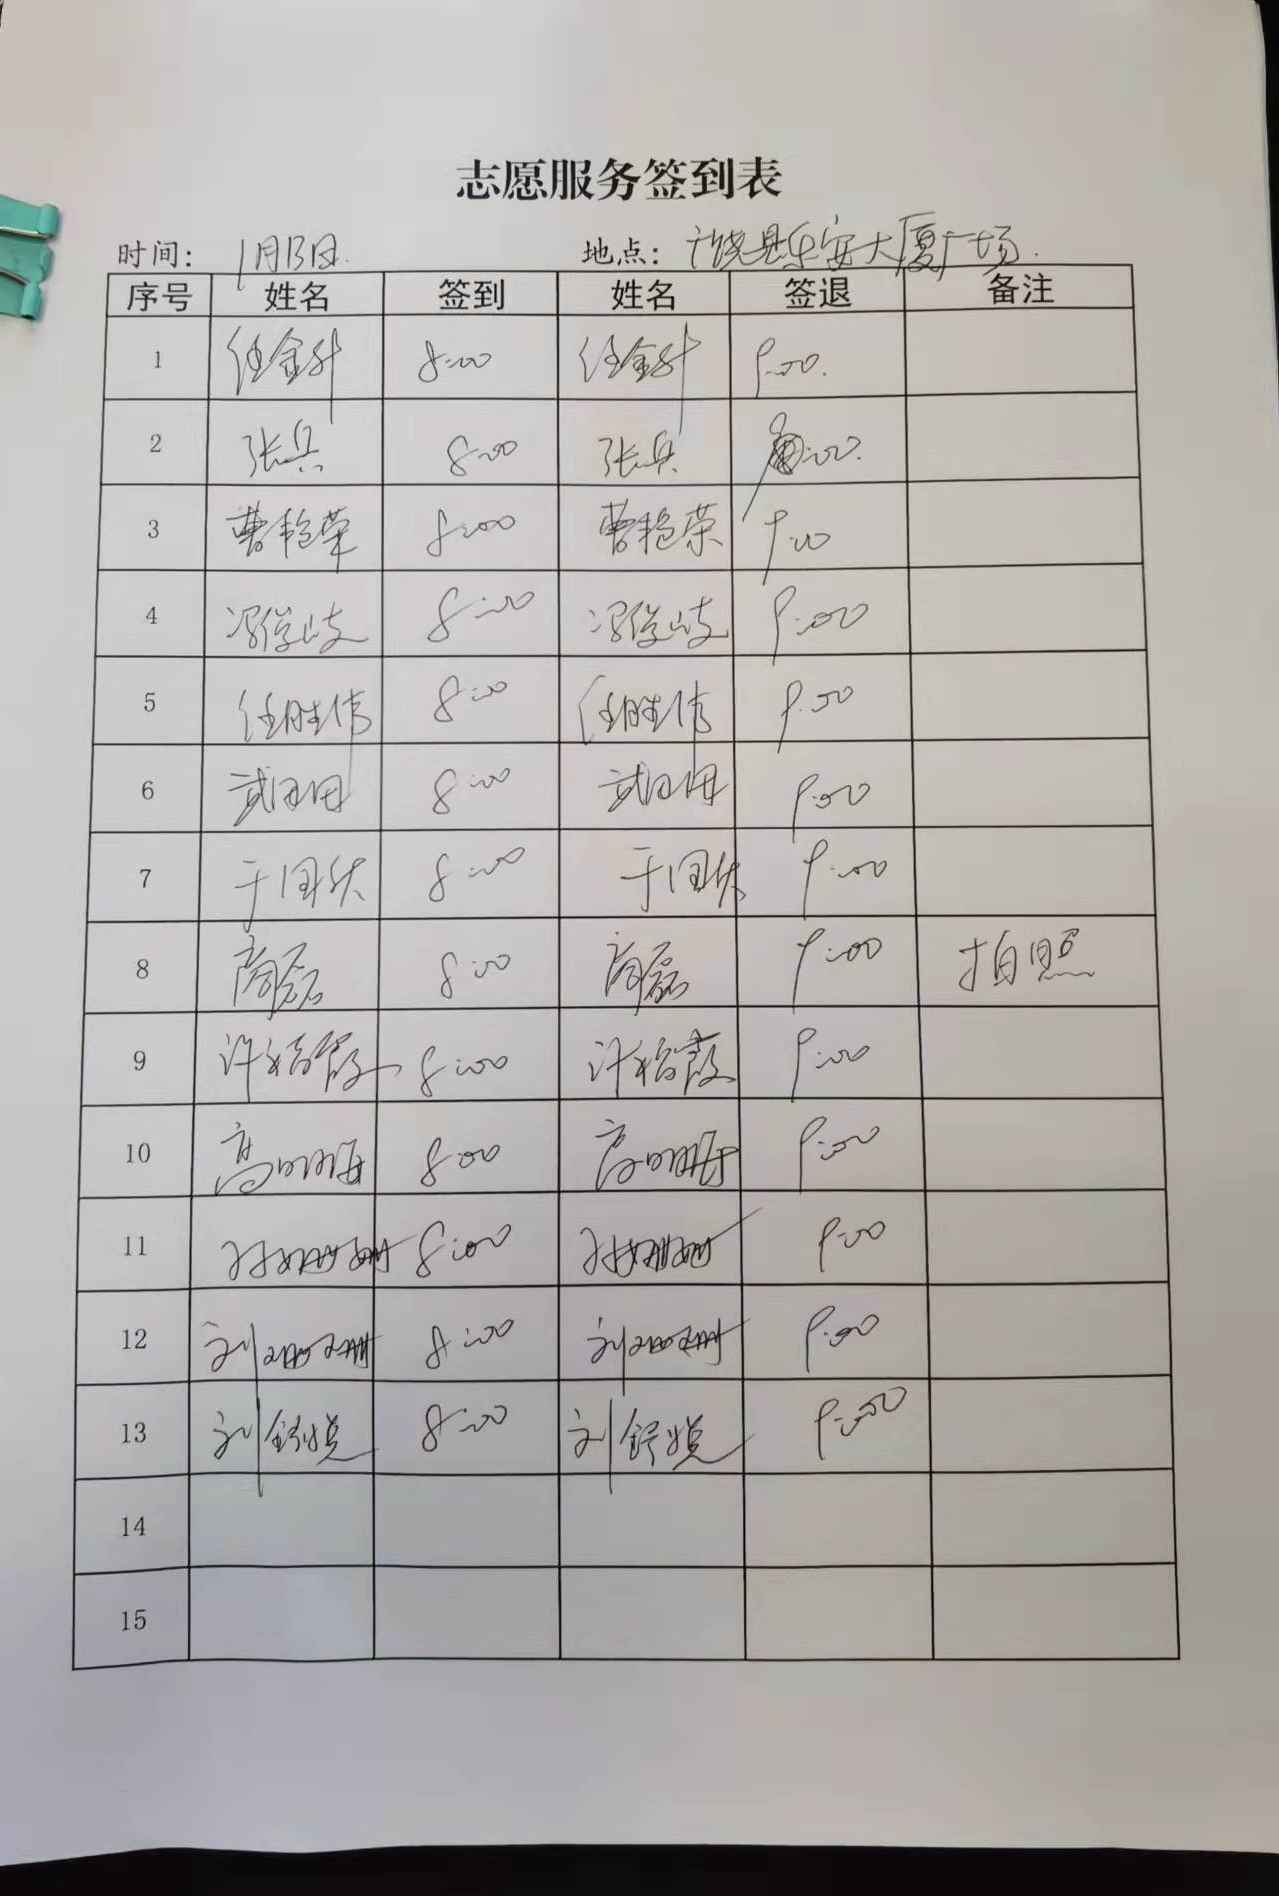 志愿服务签到表
时间: 1月13日. 地点: 广饶县乐安大厦广场.
序号 姓名 签到 姓名 签退 备注
1 任金升 8:00 任金升 9:00.
2 张兵 8:00 张兵 :00.
3 曹艳荣 8:00 曹艳荣 9:00
4 冯俊岐 8:00 冯俊岐 9:00
5 任胜伟 8:00 任胜伟 9:00
6 8:00 9:00
7 于国 8:00 于国 9:00
8 商磊 8:00 商磊 9:00 拍照
9 许裕霞 8:00 许裕霞 9:00
10 高明海 8:00 高明海 9:00
11 8:00 9:00
12 刘珊珊 8:00 刘珊珊 9:00
13 刘舒悦 8:00 刘舒悦 9:00
14
15